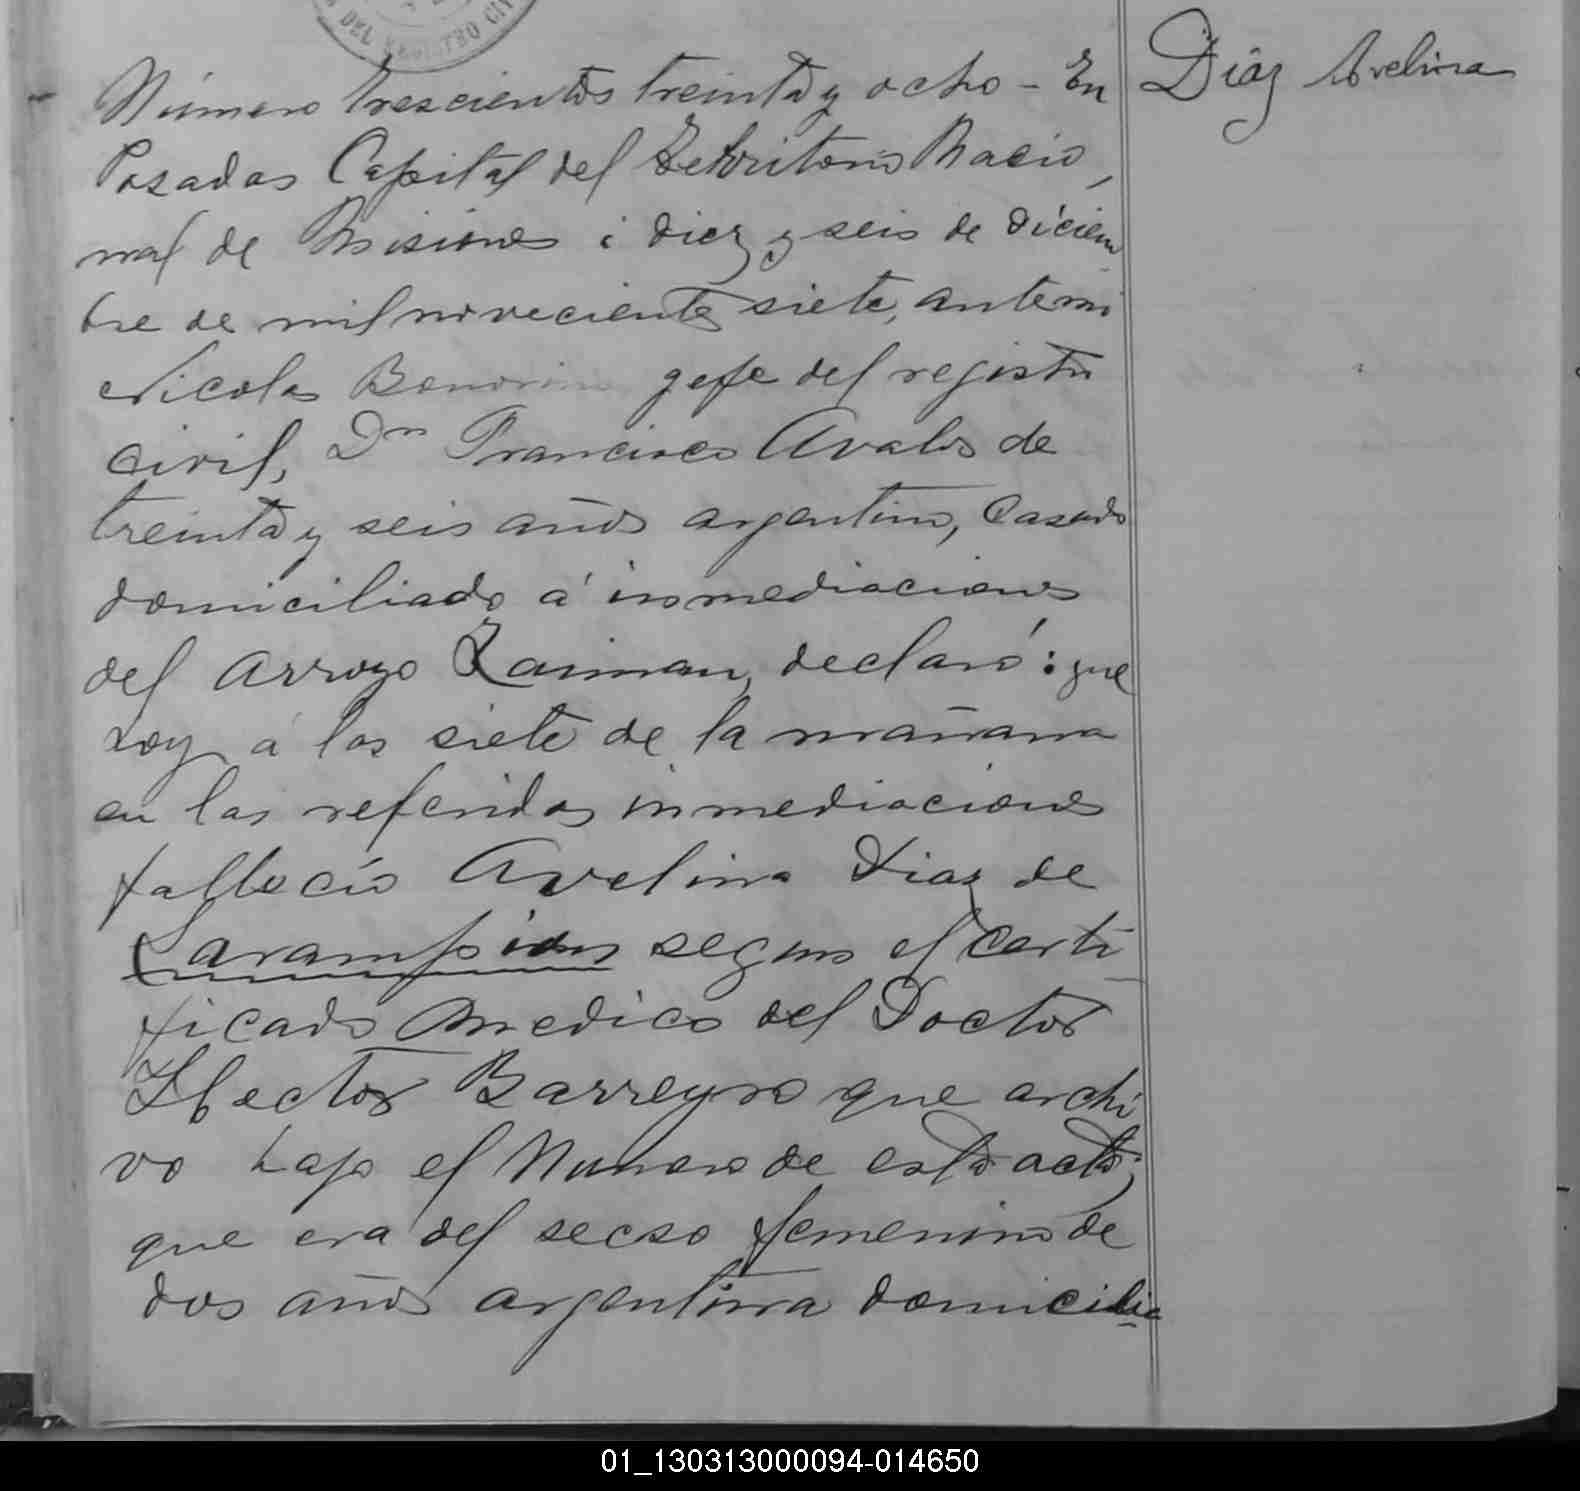 DEL REGISTRO CIVIL
Número trescientos treinta y ocho - En
Díaz Avelina
Posadas Capital del Territorio Nacio,
nal de Misiones á diez y seis de diciem
bre de mil novecientos siete, ante mi
Nicolas Bonorino gefe del registro
civil, Dn Francisco Avalos de
treinta y seis años argentino, casado
domiciliado á inmediaciones
del arroyo Zaiman, declaró: que
hoy á las siete de la mañana
en las referidas inmediaciones
falleció Avelina Diaz de
Sarampion segun el certi
ficado medico del Doctor
Hector Barreyro que archi
vo bajo el Numero de esta acta;
que era del secso femenino de
dos años argentina domicilia
01_130313000094-014650